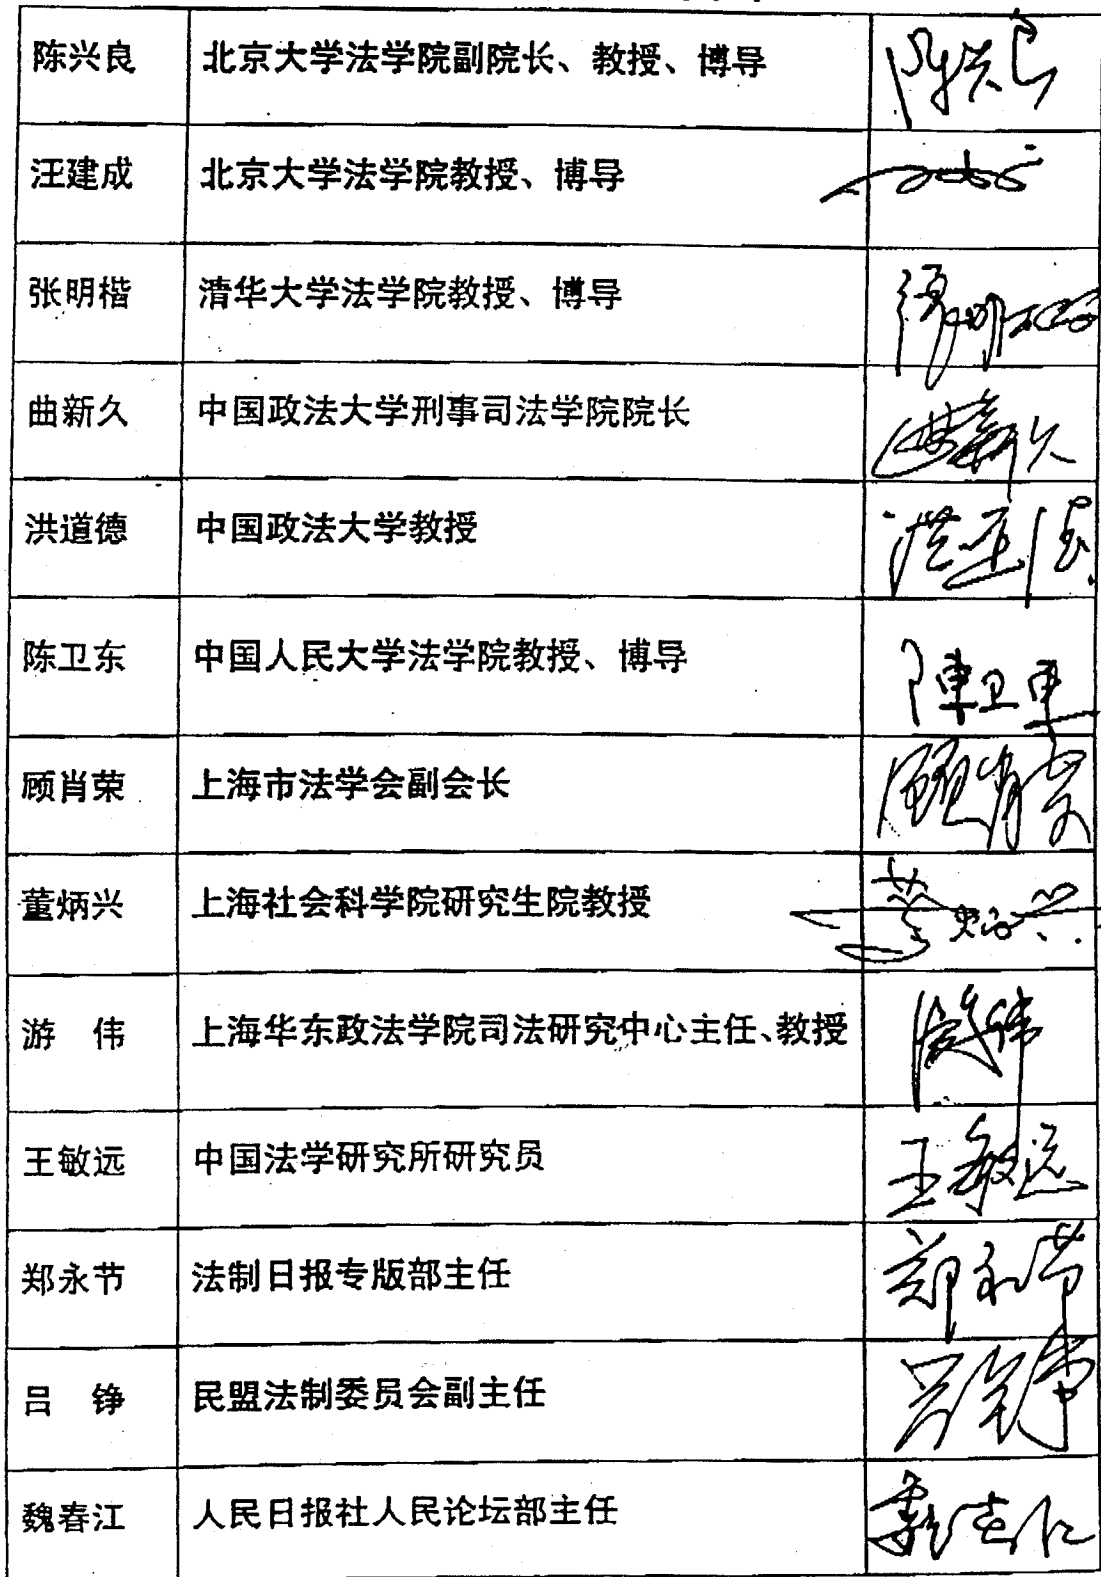 陈兴良 北京大学法学院副院长、教授、博导 陈兴良
汪建成 北京大学法学院教授、博导
张明楷 清华大学法学院教授、博导 张明楷
曲新久 中国政法大学刑事司法学院院长 曲新久
洪道德 中国政法大学教授 洪道德
陈卫东 中国人民大学法学院教授、博导 陳卫東
顾肖荣 上海市法学会副会长 顾肖荣
董炳兴 上海社会科学院研究生院教授
游 伟 上海华东政法学院司法研究中心主任、教授 游伟
王敏远 中国法学研究所研究员 王敏远
郑永节 法制日报专版部主任 郑永节
吕 铮 民盟法制委员会副主任 吕铮
魏春江 人民日报社人民论坛部主任